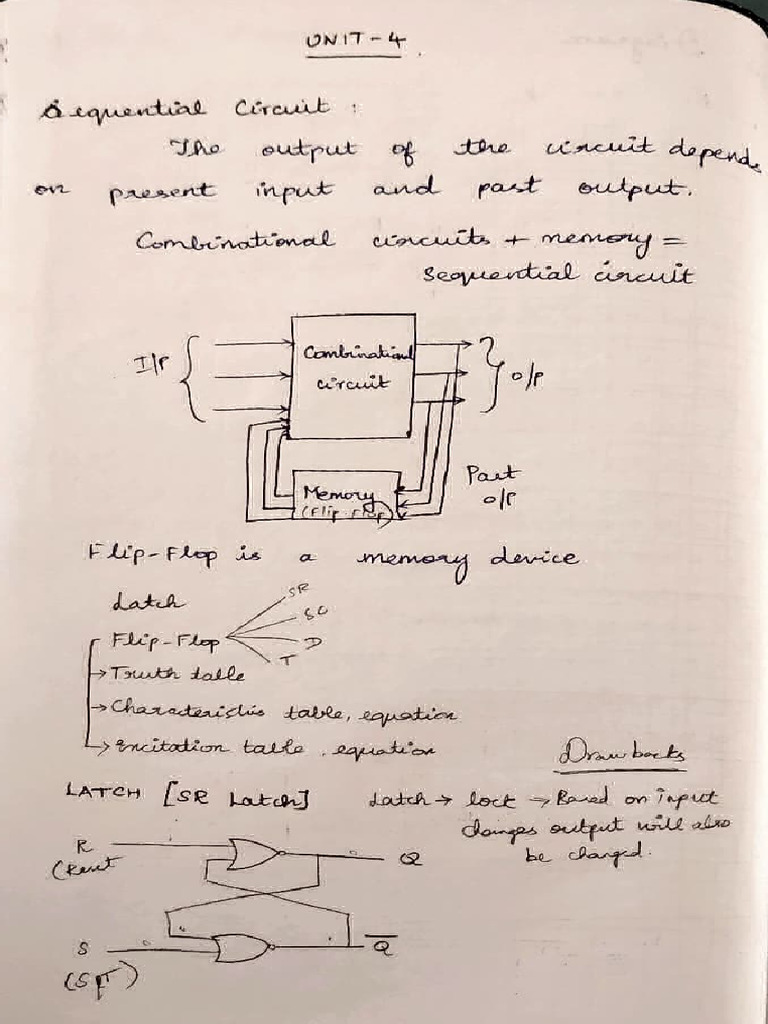 UNIT-4.
Sequential Circuit :
The output of the circuit depends
on present input and past output.
Combinational circuits + memory =
sequential circuit
I/P
Combinational
circuit
O/P
Memory
(Flip Flop)
Past
O/P
Flip-Flop is a memory device
Latch
SR
Flip-Flop
D
T
→ Truth table
→ Characteristic table, equation
→ Excitation table, equation
Drawbacks
LATCH [SR Latch] Latch → lock → Based on input
changes output will also
be changed.
R
(Reset
Q
S
Q̅
(SET)